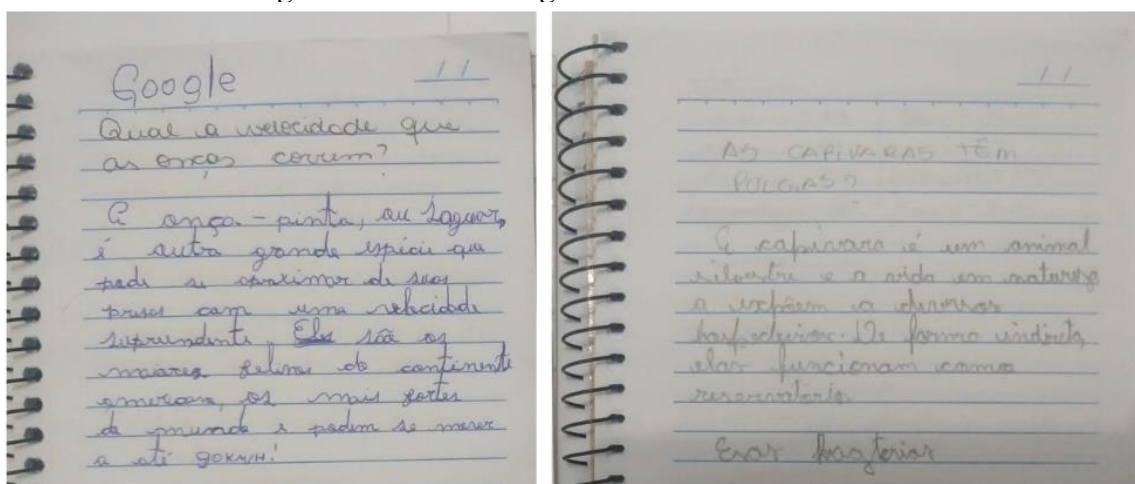 Google
Qual a velocidade que
as onças correm?
A onça-pinta, ou Jaguar,
é outra grande espécie que
pode se aproximar de suas
presas com uma velocidade
suprendente. Eles são os
maiores felinos do continente
americano, os mais fortes
do mundo e podem se mover
a até 90KM/H!
AS CAPIVARAS TÊM
PULGAS?
A capivara é um animal
silvestre e a vida em natureza
a expõem a diversos
De forma indireta,
elas funcionam como
reservatório.
Esas bagterias